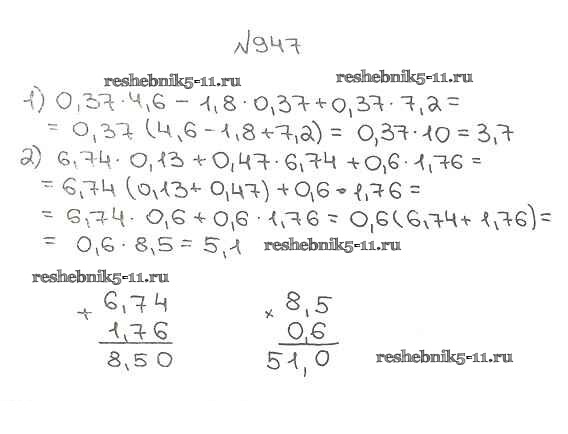 №947
reshebnik5-11.ru reshebnik5-11.ru
1) 0,37·4,6-1,8·0,37+0,37·7,2=
=0,37(4,6-1,8+7,2)=0,37·10=3,7
2) 6,74·0,13+0,47·6,74+0,6·1,76=
=6,74(0,13+0,47)+0,6·1,76=
=6,74·0,6+0,6·1,76=0,6(6,74+1,76)=
=0,6·8,5=5,1 reshebnik5-11.ru
reshebnik5-11.ru
+ 6,74 × 8,5
1,76 0,6
8,50 51,0 reshebnik5-11.ru